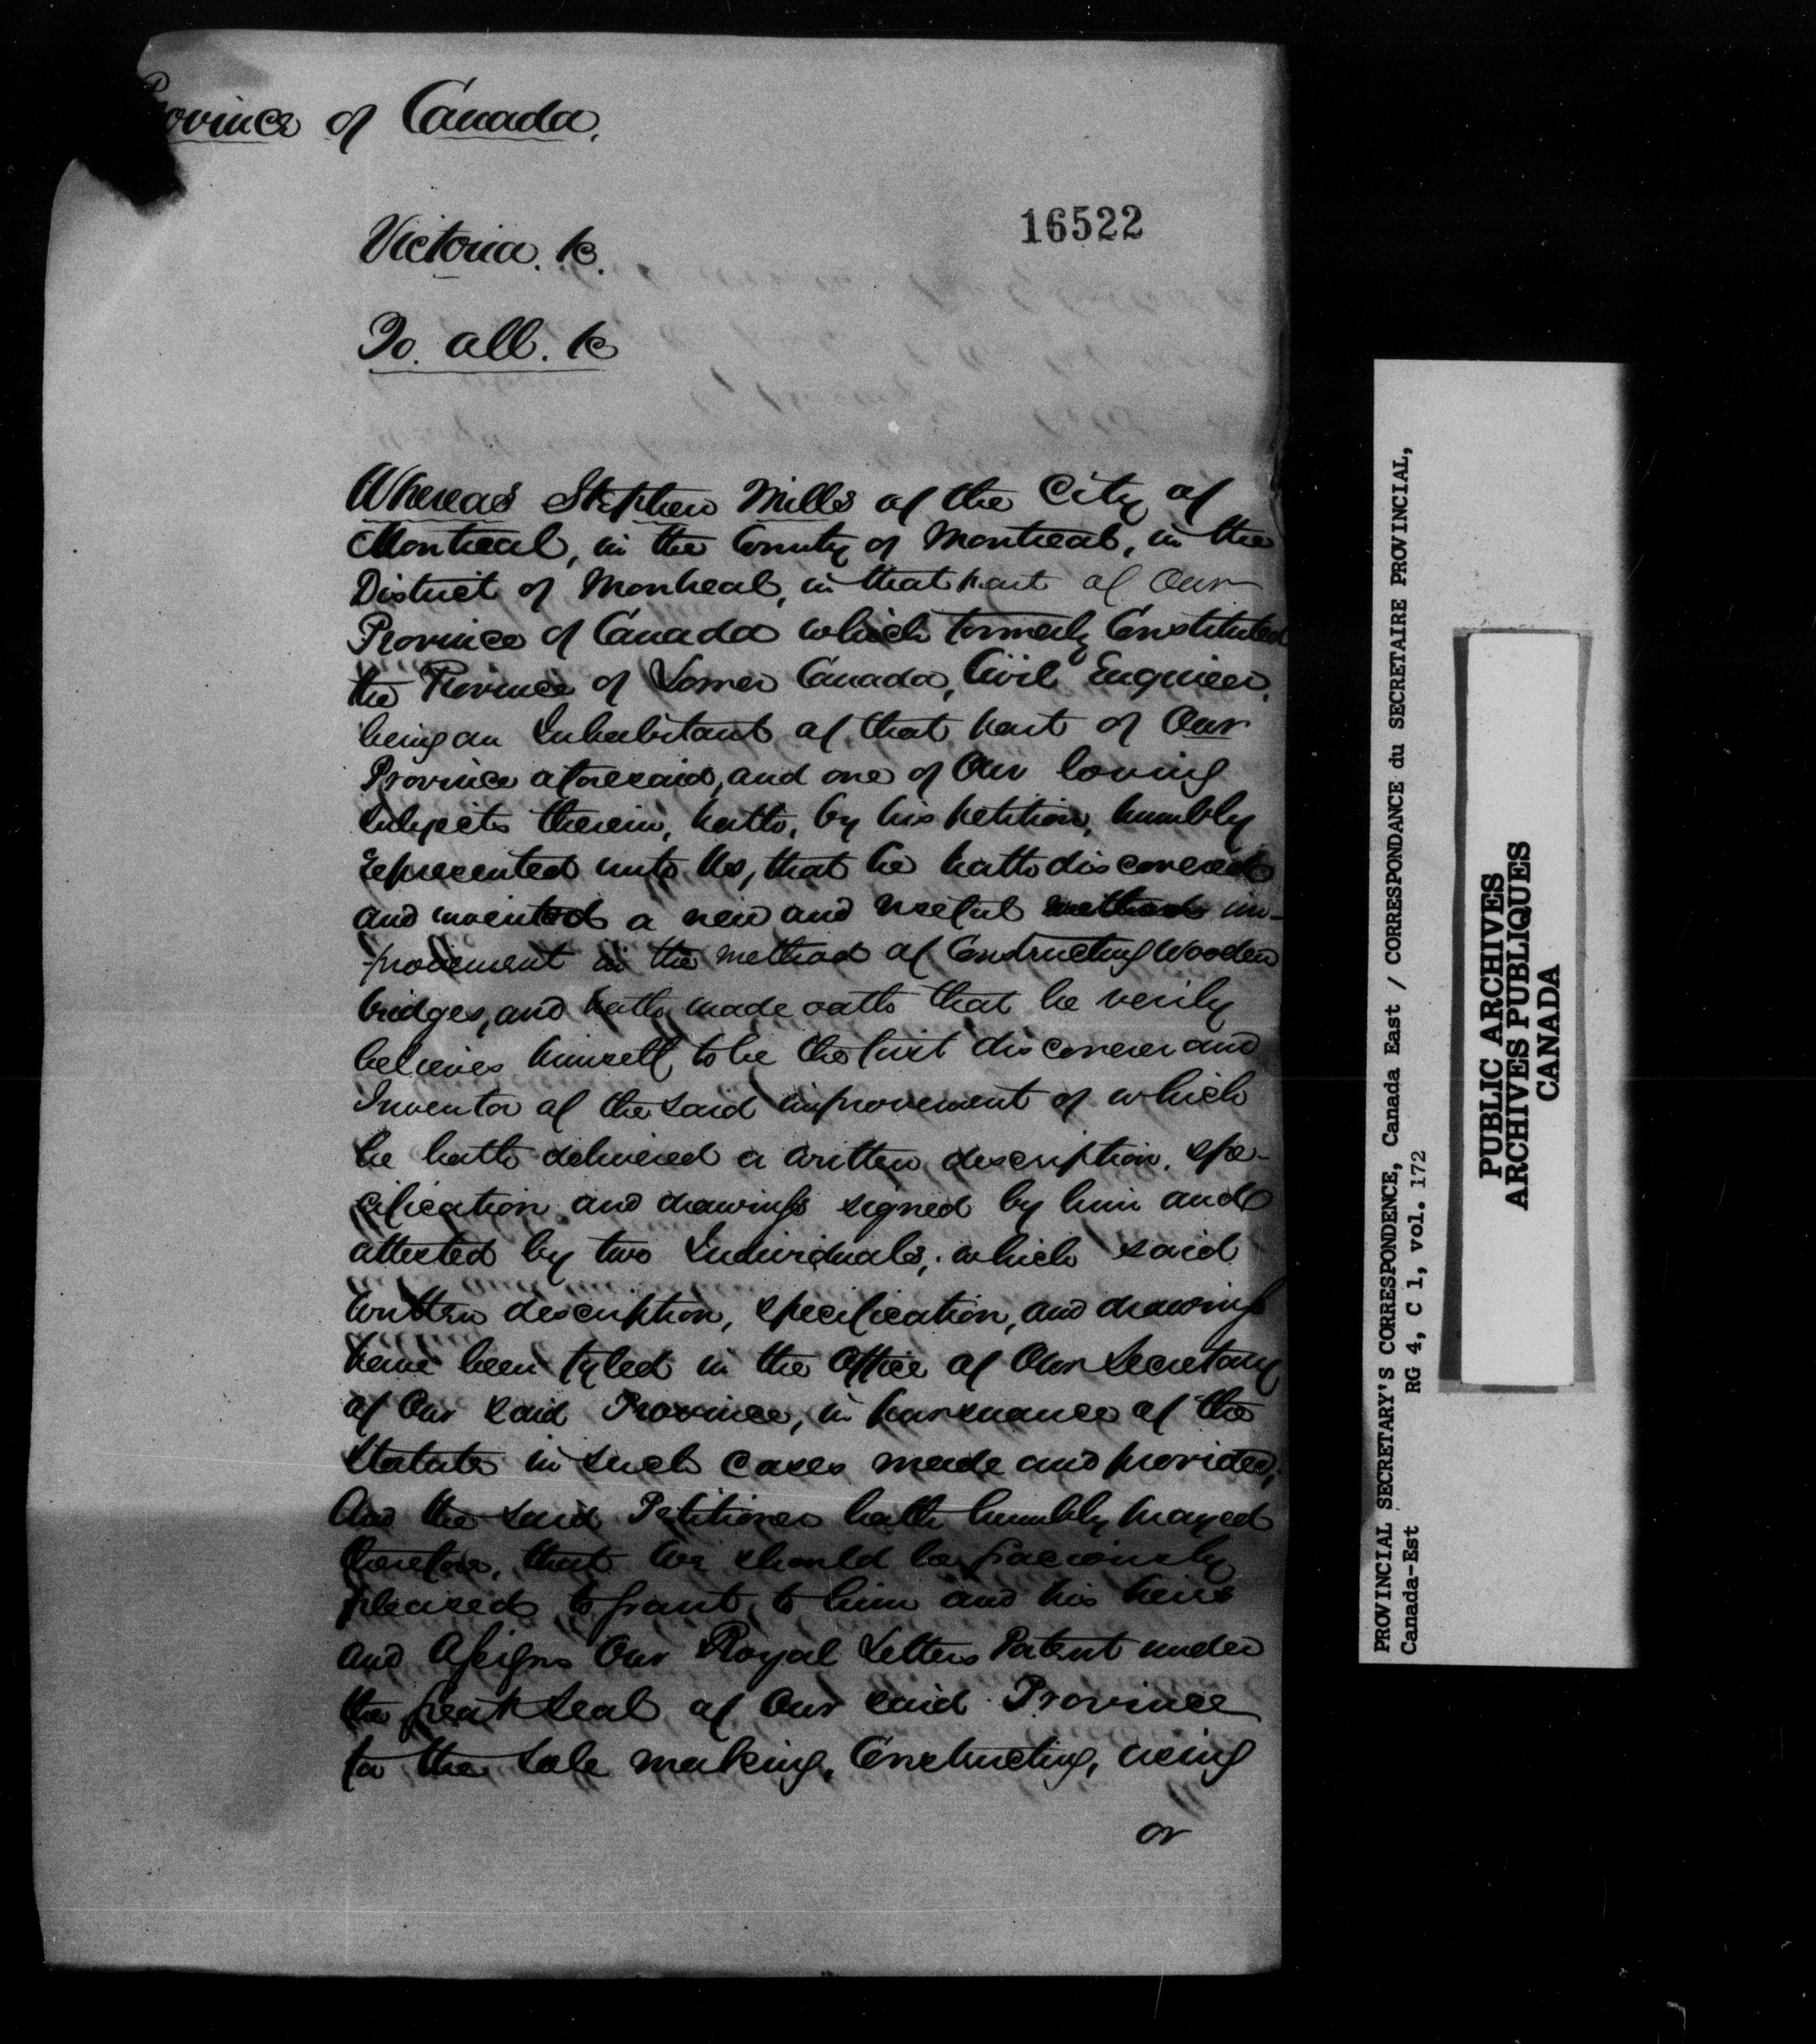 Province of Canada.
16522
Victoria. &c.
To. all. &c
Whereas Stephen Mills of the City of
Montreal, in the County of Montreal, in the
District of Montreal, in that part of Our
Province of Canada which formerly Constituted
the Province of Lower Canada, Civil Engineer,
being an Inhabitant of that part of Our
Province aforesaid, and one of Our loving
subjects therein, hath, by his petition, humbly
represented unto Us, that he hath discovered
and invented a new and useful method im-
provement in the method of Constructing Wooden
bridges, and hath made oath that he verily
believes himself to be the first discoverer and
Inventor of the said improvement of which
he hath delivered a written description, spe-
cification and drawings signed by him and
attested by two Individuals, which said
written description, specification, and drawings
have been fyled in the Office of Our Secretary
of Our said Province, in pursuance of the
Statute in such cases made and provided;
And the said Petitioner hath humbly prayed
therefore, that We should be graciously
pleased to grant to him and his heirs
and Assigns Our Royal Letters Patent under
the great Seal of Our said Province
for the sole making, Constructing, using
or
PROVINCIAL SECRETARY'S CORRESPONDENCE, Canada East / CORRESPONDANCE du SECRETAIRE PROVINCIAL,
Canada-Est RG 4, C 1, vol. 172
PUBLIC ARCHIVES
ARCHIVES PUBLIQUES
CANADA